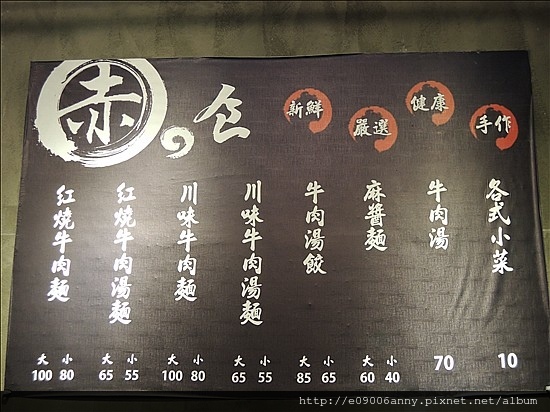 赤 仝
新鮮
嚴選
健康
手作
紅燒牛肉麵
大 小
100 80
紅燒牛肉湯麵
大 小
65 55
川味牛肉麵
大 小
100 80
川味牛肉湯麵
大 小
65 55
牛肉湯餃
大 小
85 65
麻醬麵
大 小
60 40
牛肉湯
70
各式小菜
10
http://e09006anny.pixnet.net/album